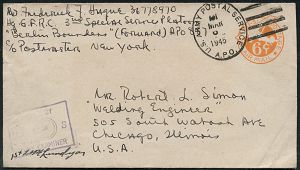 Frederick F. Hague 36778970
Hq G.F.R.C. 3rd Special Service Platoon
"Berlin Bounders" (Forward) APO
c/o Postmaster New York.
U.S. ARMY POSTAL SERVICE
MAR
1945
A.P.O.
6¢
Mr. Robert L. Simon
"Welding Engineer"
505 South Wabash Ave
Chicago, Illinois
U.S.A.
BY
EXAMINER
1st Lt